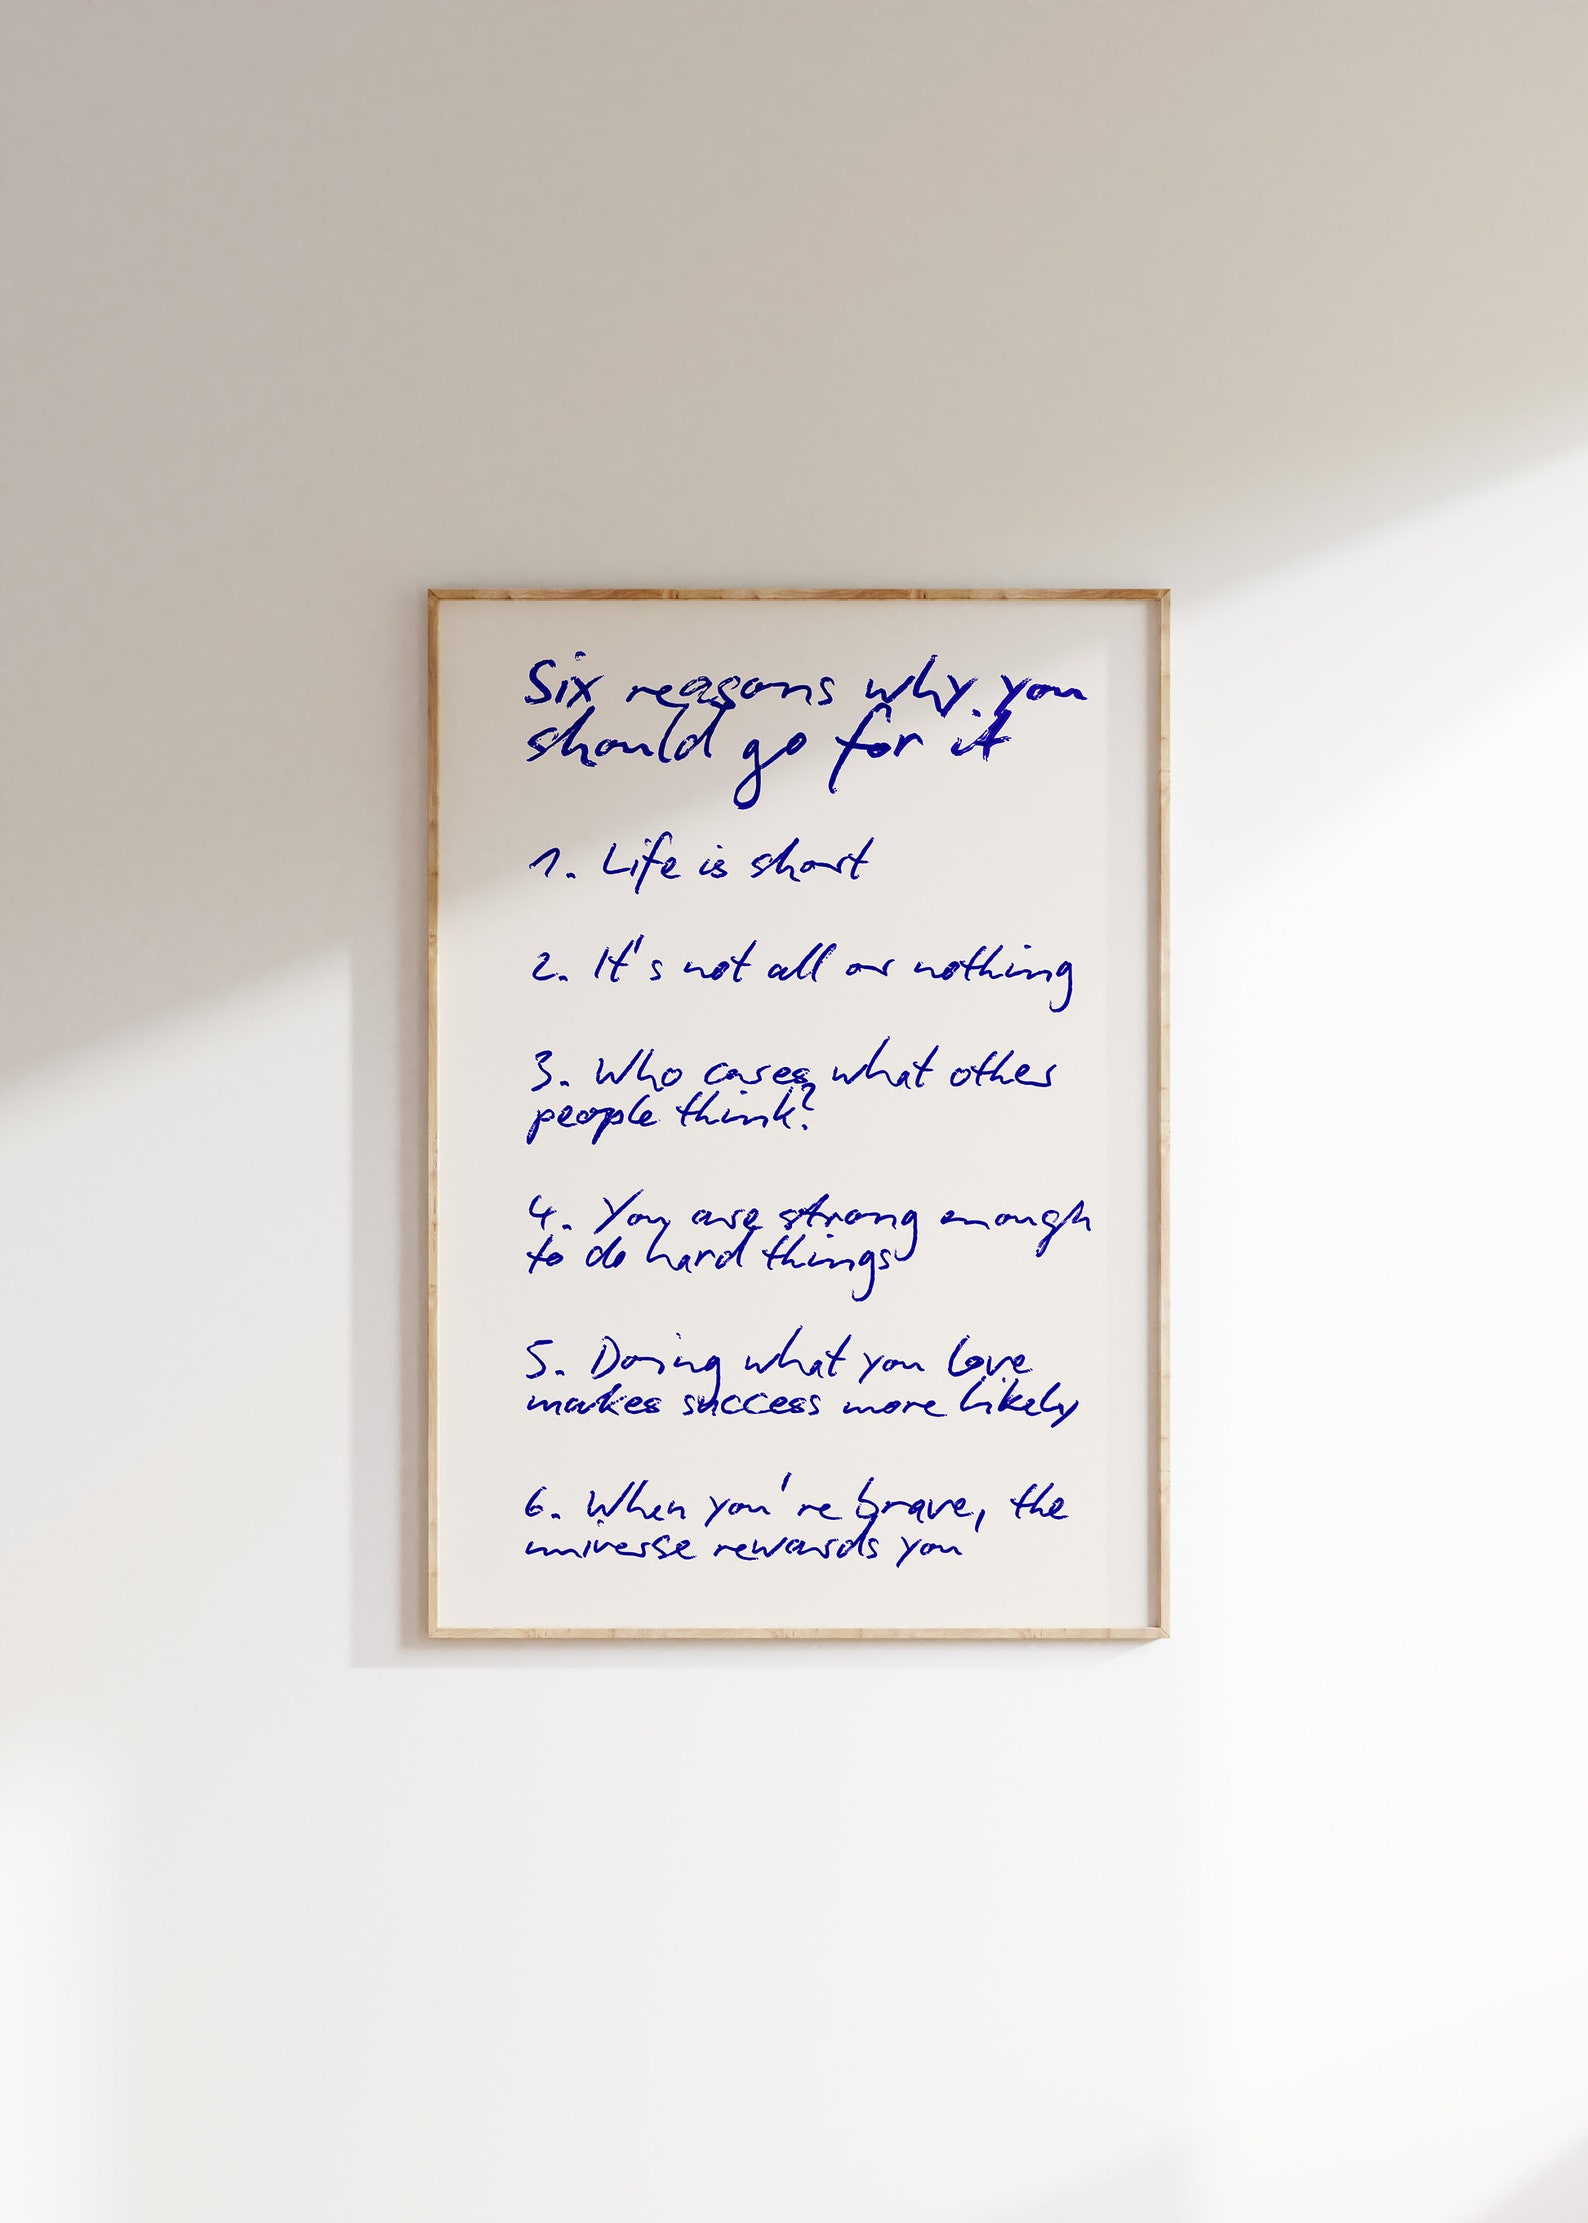 Six reasons why you
should go for it
1. Life is short
2. It's not all or nothing
3. Who cares what other
people think?
4. You are strong enough
to do hard things
5. Doing what you love
makes success more likely
6. When you're brave, the
universe rewards you